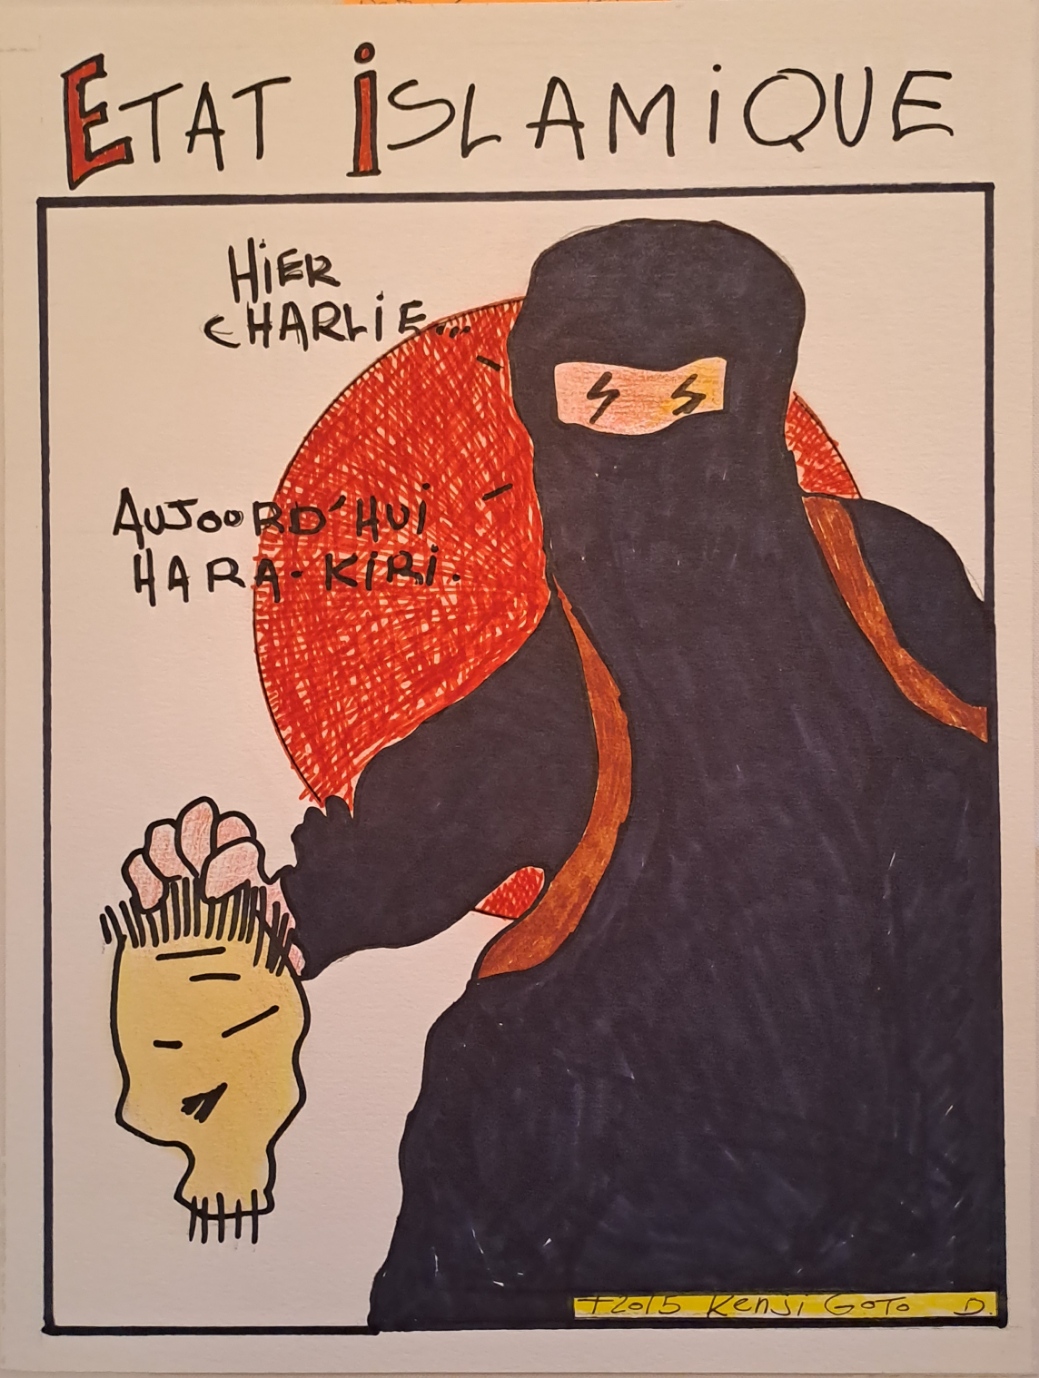 ETAT iSLAMiQUE
HiER
CHARLiE...
AUJOORD'HUi
HARA-KiRi.
†2015 Kenji GOTO D.